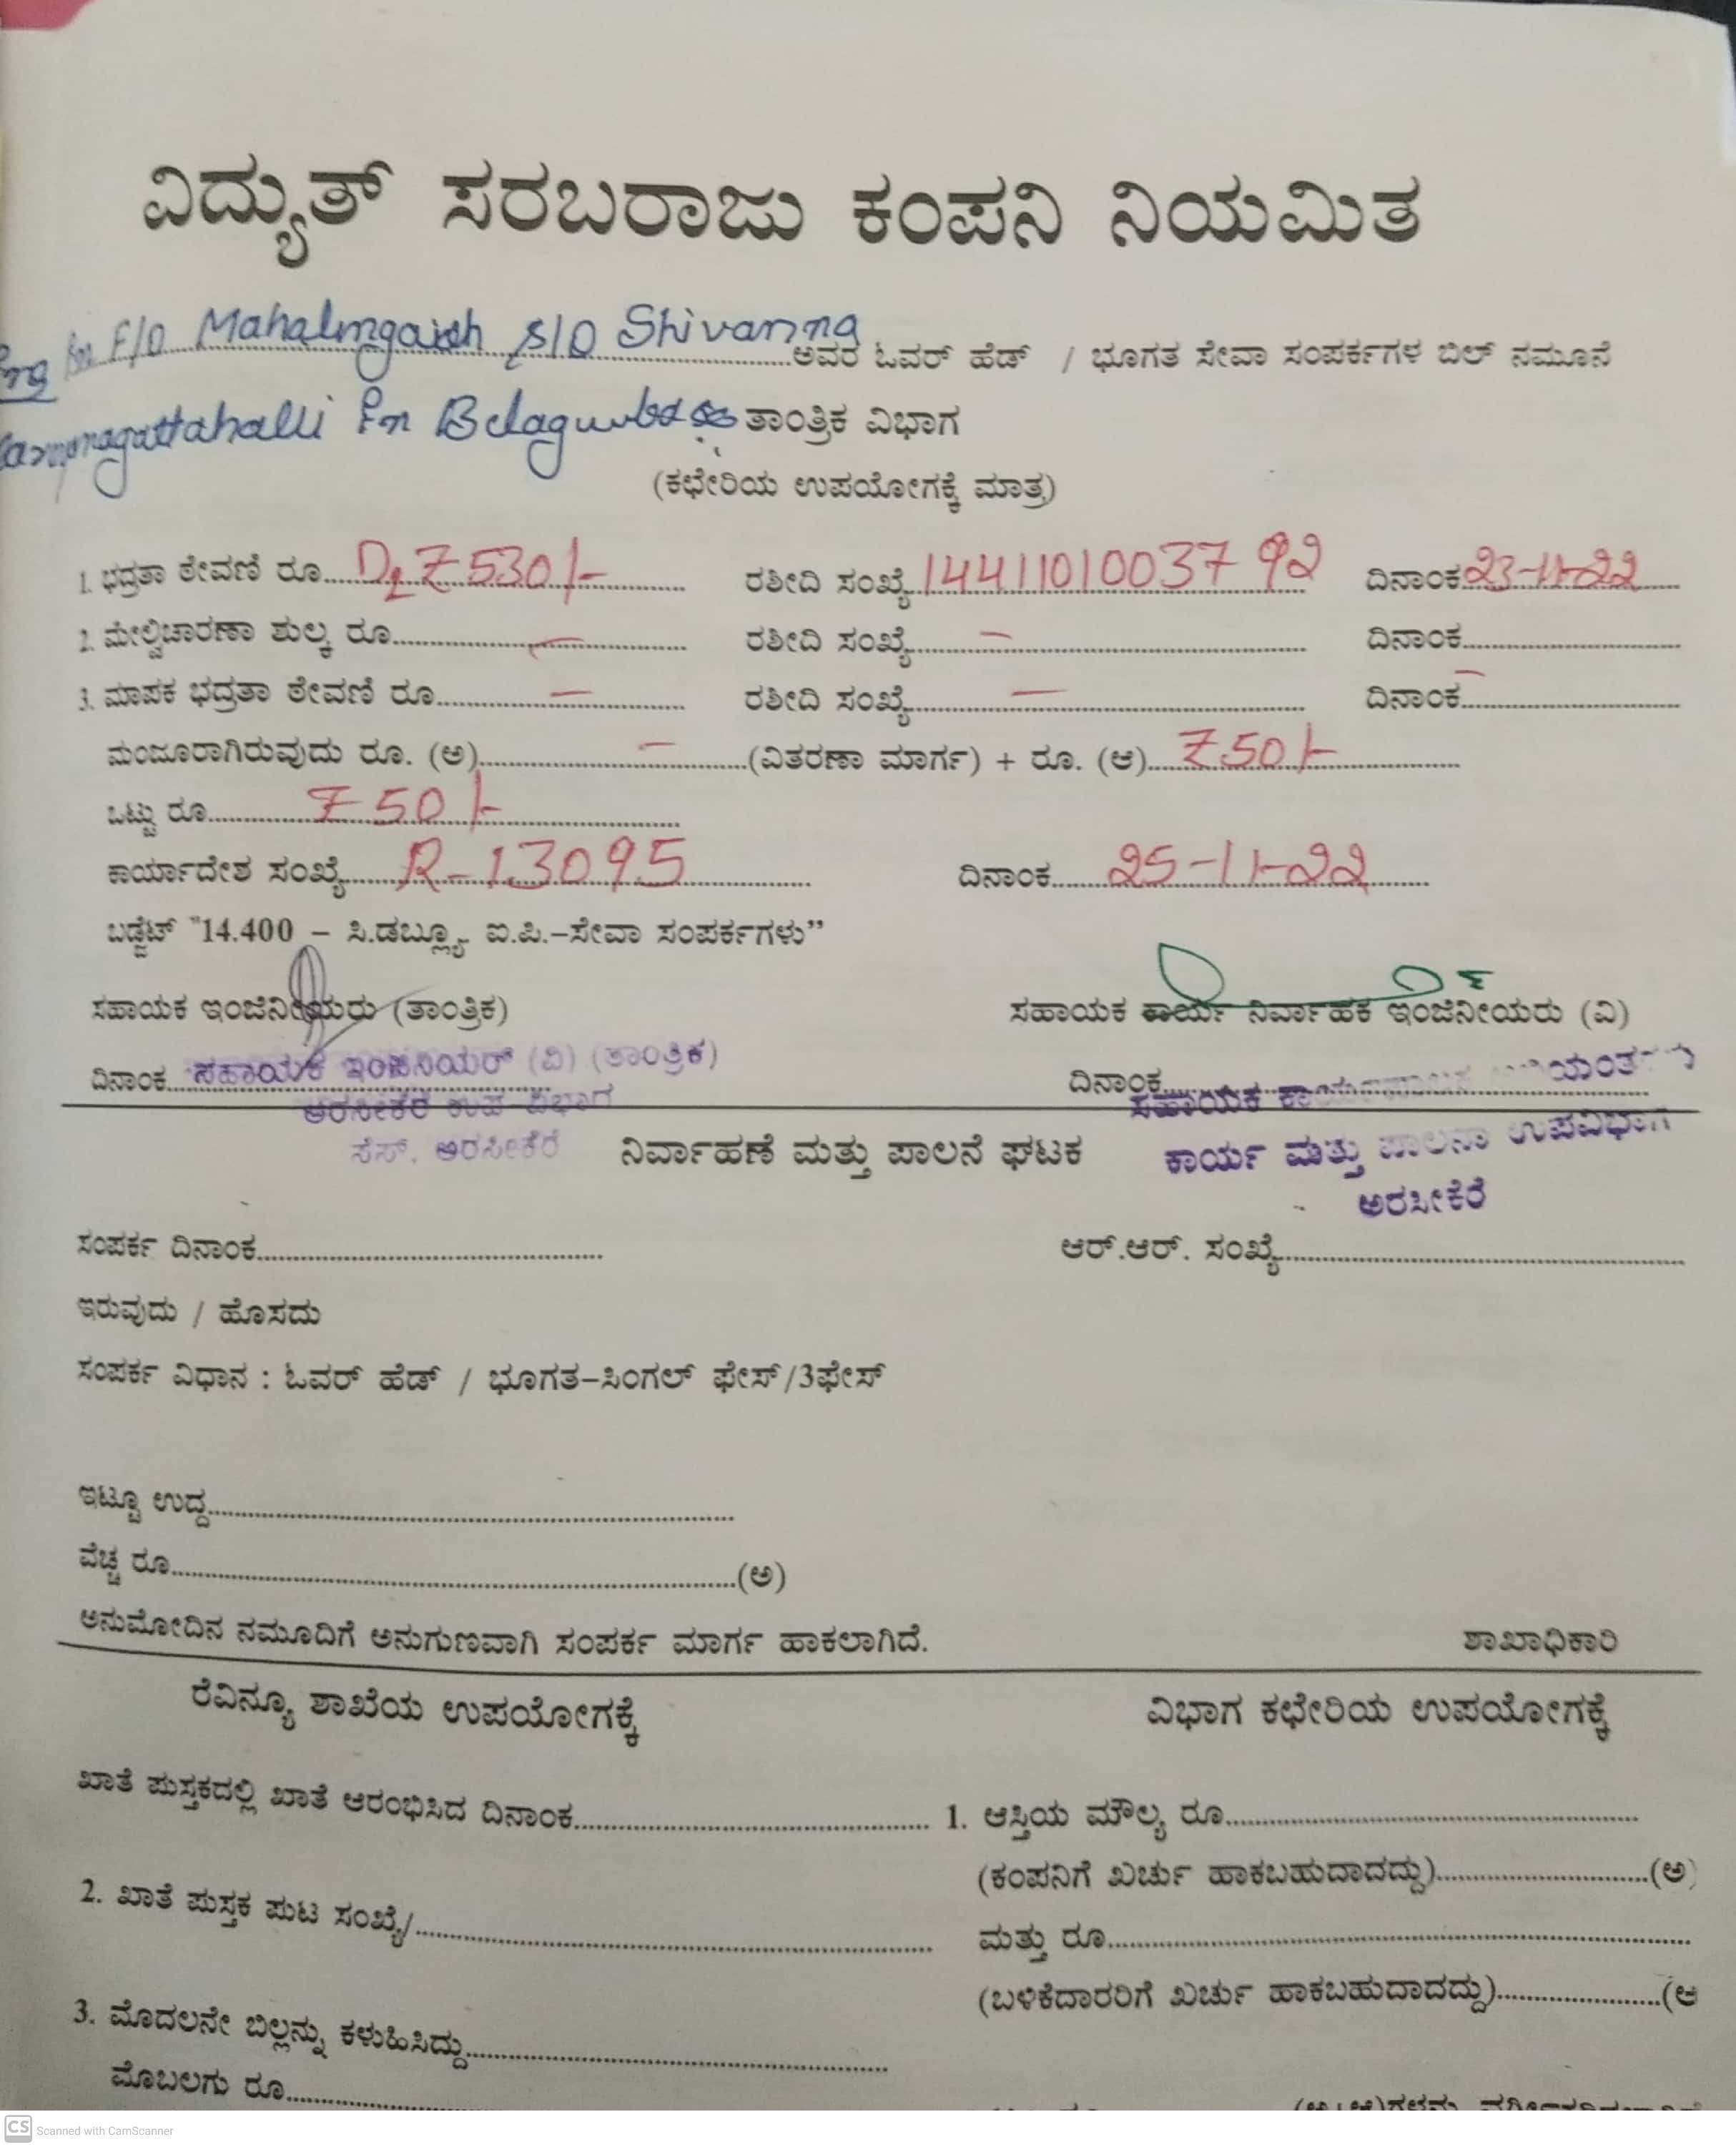 ವಿದ್ಯುತ್ ಸರಬರಾಜು ಕಂಪನಿ ನಿಯಮಿತ
F/O Mahalingaiah S/O Shivanna ಅವರ ಓವರ್ ಹೆಡ್ / ಭೂಗತ ಸೇವಾ ಸಂಪರ್ಕಗಳ ಬಿಲ್ ನಮೂನೆ
ತಾಂತ್ರಿಕ ವಿಭಾಗ
(ಕಛೇರಿಯ ಉಪಯೋಗಕ್ಕೆ ಮಾತ್ರ)
1. ಭದ್ರತಾ ಠೇವಣಿ ರೂ 7530/- ರಶೀದಿ ಸಂಖ್ಯೆ 1441101003792 ದಿನಾಂಕ 23-11-22
2. ಮೇಲ್ವಿಚಾರಣಾ ಶುಲ್ಕ ರೂ — ರಶೀದಿ ಸಂಖ್ಯೆ — ದಿನಾಂಕ
3. ಮಾಪಕ ಭದ್ರತಾ ಠೇವಣಿ ರೂ — ರಶೀದಿ ಸಂಖ್ಯೆ — ದಿನಾಂಕ —
ಮಂಜೂರಾಗಿರುವುದು ರೂ. (ಅ) — (ವಿತರಣಾ ಮಾರ್ಗ) + ರೂ. (ಆ) 750/-
ಒಟ್ಟು ರೂ 750/-
ಕಾರ್ಯಾದೇಶ ಸಂಖ್ಯೆ R-13095 ದಿನಾಂಕ 25-11-22
ಬಡ್ಜೆಟ್ "14.400 – ಸಿ.ಡಬ್ಲ್ಯೂ. ಐ.ಪಿ.–ಸೇವಾ ಸಂಪರ್ಕಗಳು"
ಸಹಾಯಕ ಇಂಜಿನಿಯರು (ತಾಂತ್ರಿಕ) ಸಹಾಯಕ ಕಾರ್ಯ ನಿರ್ವಾಹಕ ಇಂಜಿನೀಯರು (ವಿ)
ದಿನಾಂಕ ಸಹಾಯಕ ಇಂಜಿನಿಯರ್ (ವಿ) (ತಾಂತ್ರಿಕ) ದಿನಾಂಕ
ಅರಸೀಕೆರೆ ಉಪ ವಿಭಾಗ ಸಹಾಯಕ
ಸೆಸ್. ಅರಸೀಕೆರೆ ನಿರ್ವಾಹಣೆ ಮತ್ತು ಪಾಲನೆ ಘಟಕ ಕಾರ್ಯ ಮತ್ತು ಪಾಲನಾ ಉಪವಿಭಾಗ
ಅರಸೀಕೆರೆ
ಸಂಪರ್ಕ ದಿನಾಂಕ ಆರ್.ಆರ್. ಸಂಖ್ಯೆ
ಇರುವುದು / ಹೊಸದು
ಸಂಪರ್ಕ ವಿಧಾನ : ಓವರ್ ಹೆಡ್ / ಭೂಗತ–ಸಿಂಗಲ್ ಫೇಸ್/3ಫೇಸ್
ಇಟ್ಟೂ ಉದ್ದ
ವೆಚ್ಚ ರೂ (ಅ)
ಅನುಮೋದಿನ ನಮೂದಿಗೆ ಅನುಗುಣವಾಗಿ ಸಂಪರ್ಕ ಮಾರ್ಗ ಹಾಕಲಾಗಿದೆ. ಶಾಖಾಧಿಕಾರಿ
ರೆವಿನ್ಯೂ ಶಾಖೆಯ ಉಪಯೋಗಕ್ಕೆ ವಿಭಾಗ ಕಛೇರಿಯ ಉಪಯೋಗಕ್ಕೆ
ಖಾತೆ ಪುಸ್ತಕದಲ್ಲಿ ಖಾತೆ ಆರಂಭಿಸಿದ ದಿನಾಂಕ 1. ಆಸ್ತಿಯ ಮೌಲ್ಯ ರೂ
(ಕಂಪನಿಗೆ ಖರ್ಚು ಹಾಕಬಹುದಾದದ್ದು) (ಅ)
2. ಖಾತೆ ಪುಸ್ತಕ ಪುಟ ಸಂಖ್ಯೆ/ ಮತ್ತು ರೂ
(ಬಳಿಕೆದಾರರಿಗೆ ಖರ್ಚು ಹಾಕಬಹುದಾದದ್ದು) (ಆ
3. ಮೊದಲನೇ ಬಿಲ್ಲನ್ನು ಕಳುಹಿಸಿದ್ದು
ಮೊಬಲಗು ರೂ
CS Scanned with CamScanner